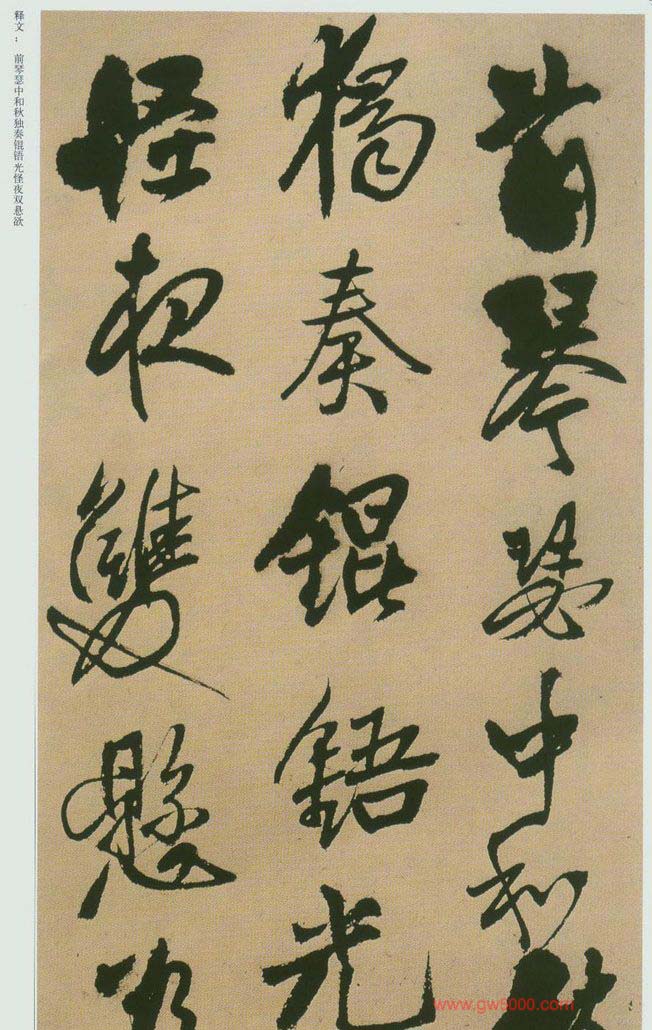 前琴瑟中和秋
獨奏錕鋙光
怪夜雙懸欲
释文： 前琴瑟中和秋独奏锟铻光怪夜双悬欲
www.gw5000.com